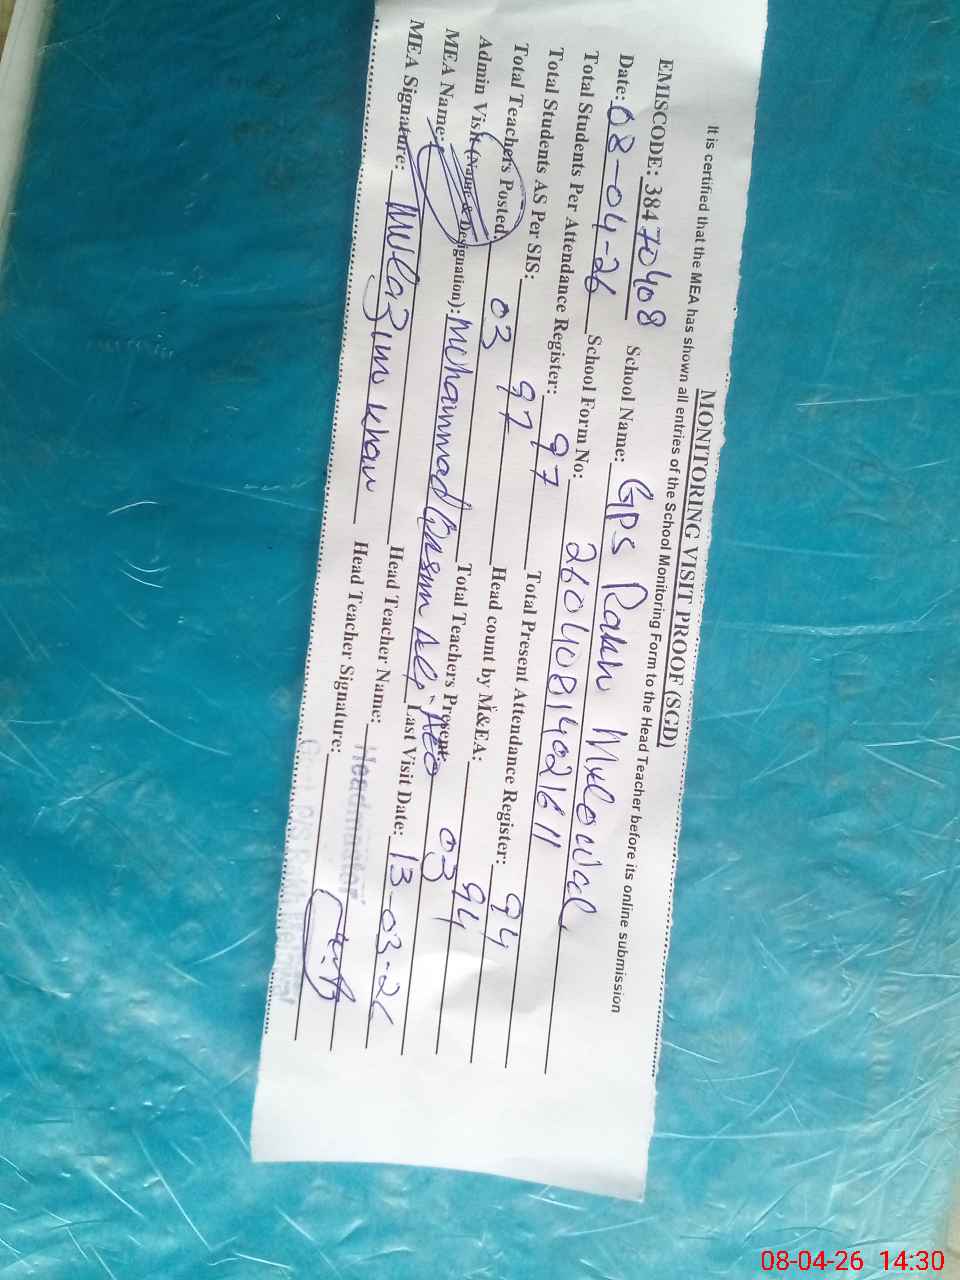 MONITORING VISIT PROOF (SGD)
It is certified that the MEA has shown all entries of the School Monitoring Form to the Head Teacher before its online submission
EMISCODE: 38470408 School Name: GPS Rakh
Date: 08-04-26 School Form No: 26040814021611
Total Students Per Attendance Register: 97 Total Present Attendance Register: 94
Total Students AS Per SIS: 97 Head count by M&EA: 94
Total Teachers Posted: 03 Total Teachers Present: 03
Admin Visit (Name & Designation): Muhammad Qasim Ali - AEO Last Visit Date: 13-03-26
MEA Name: Mulazim Khan Head Teacher Name: Headmaster
MEA Signature: Head Teacher Signature:
08-04-26 14:30